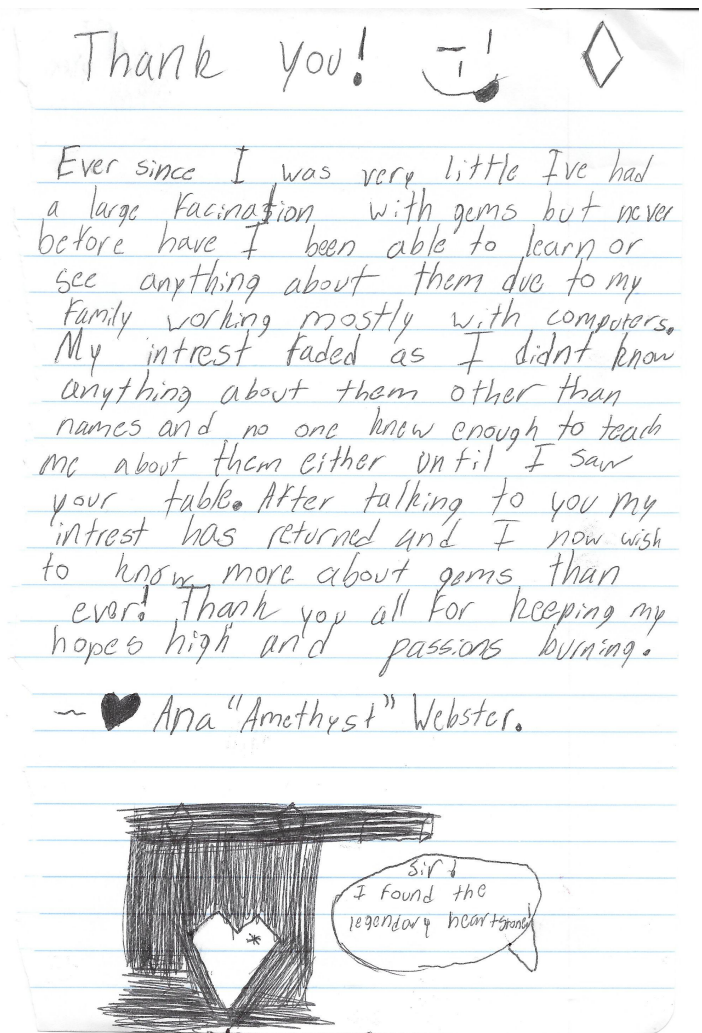 Thank you!
Ever since I was very little Ive had
a large facination with gems but never
before have I been able to learn or
see anything about them due to my
family working mostly with computers.
My intrest faded as I didnt know
anything about them other than
names and no one knew enough to teach
me about them either until I saw
your table. After talking to you my
intrest has returned and I now wish
to know more about gems than
ever! Thank you all for keeping my
hopes high and passions burning.
~ ♥ Ana "Amethyst" Webster.
Sir!
I found the
legendary heartstone